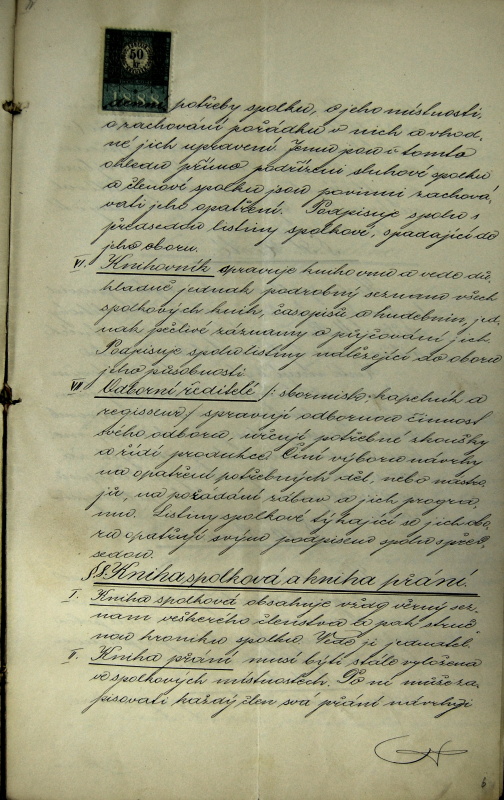 50
kr
1888
denní potřeby spolku, o jeho místnosti,
o zachování pořádku v nich a vhod-
né jich upravení. Jemu jsou v tomto
ohledu přímo podřízeni sluhové spolku
a členové spolku jsou povinni zachová-
vati jeho opatření. Podpisuje spolu s
předsedou listiny spolkové, spadající do
jeho oboru.
VI. Knihovník spravuje knihovnu a vede dů-
kladně jednak podrobný seznam všech
spolkových knih, časopisů a hudebnin, jed-
nak pečlivé záznamy o půjčování jich.
Podpisuje spolu listiny náležející do oboru
jeho působnosti.
VII. Odborní ředitelé /: sbormistr, kapelník a
regisseur/ spravují odbornou činnost
svého odboru, určují potřebné zkoušky
a řídí produkce. Činí výboru návrhy
na opatření potřebných věcí, nebo nástro-
jů, na pořádání zábav a jich progra-
mu. Listiny spolkové týkající se jich obo-
ru opatřují svým podpisem spolu s před-
sedou.
Kniha spolková a kniha přání.
I. Kniha spolková obsahuje vždy věrný sez-
nam veškerého členstva a pak struč-
nou kroniku spolku. Vede ji jednatel.
II. Kniha přání musí býti stále vyložena
ve spolkových místnostech. Do ní může za-
pisovati každý člen svá přání návrhy
6